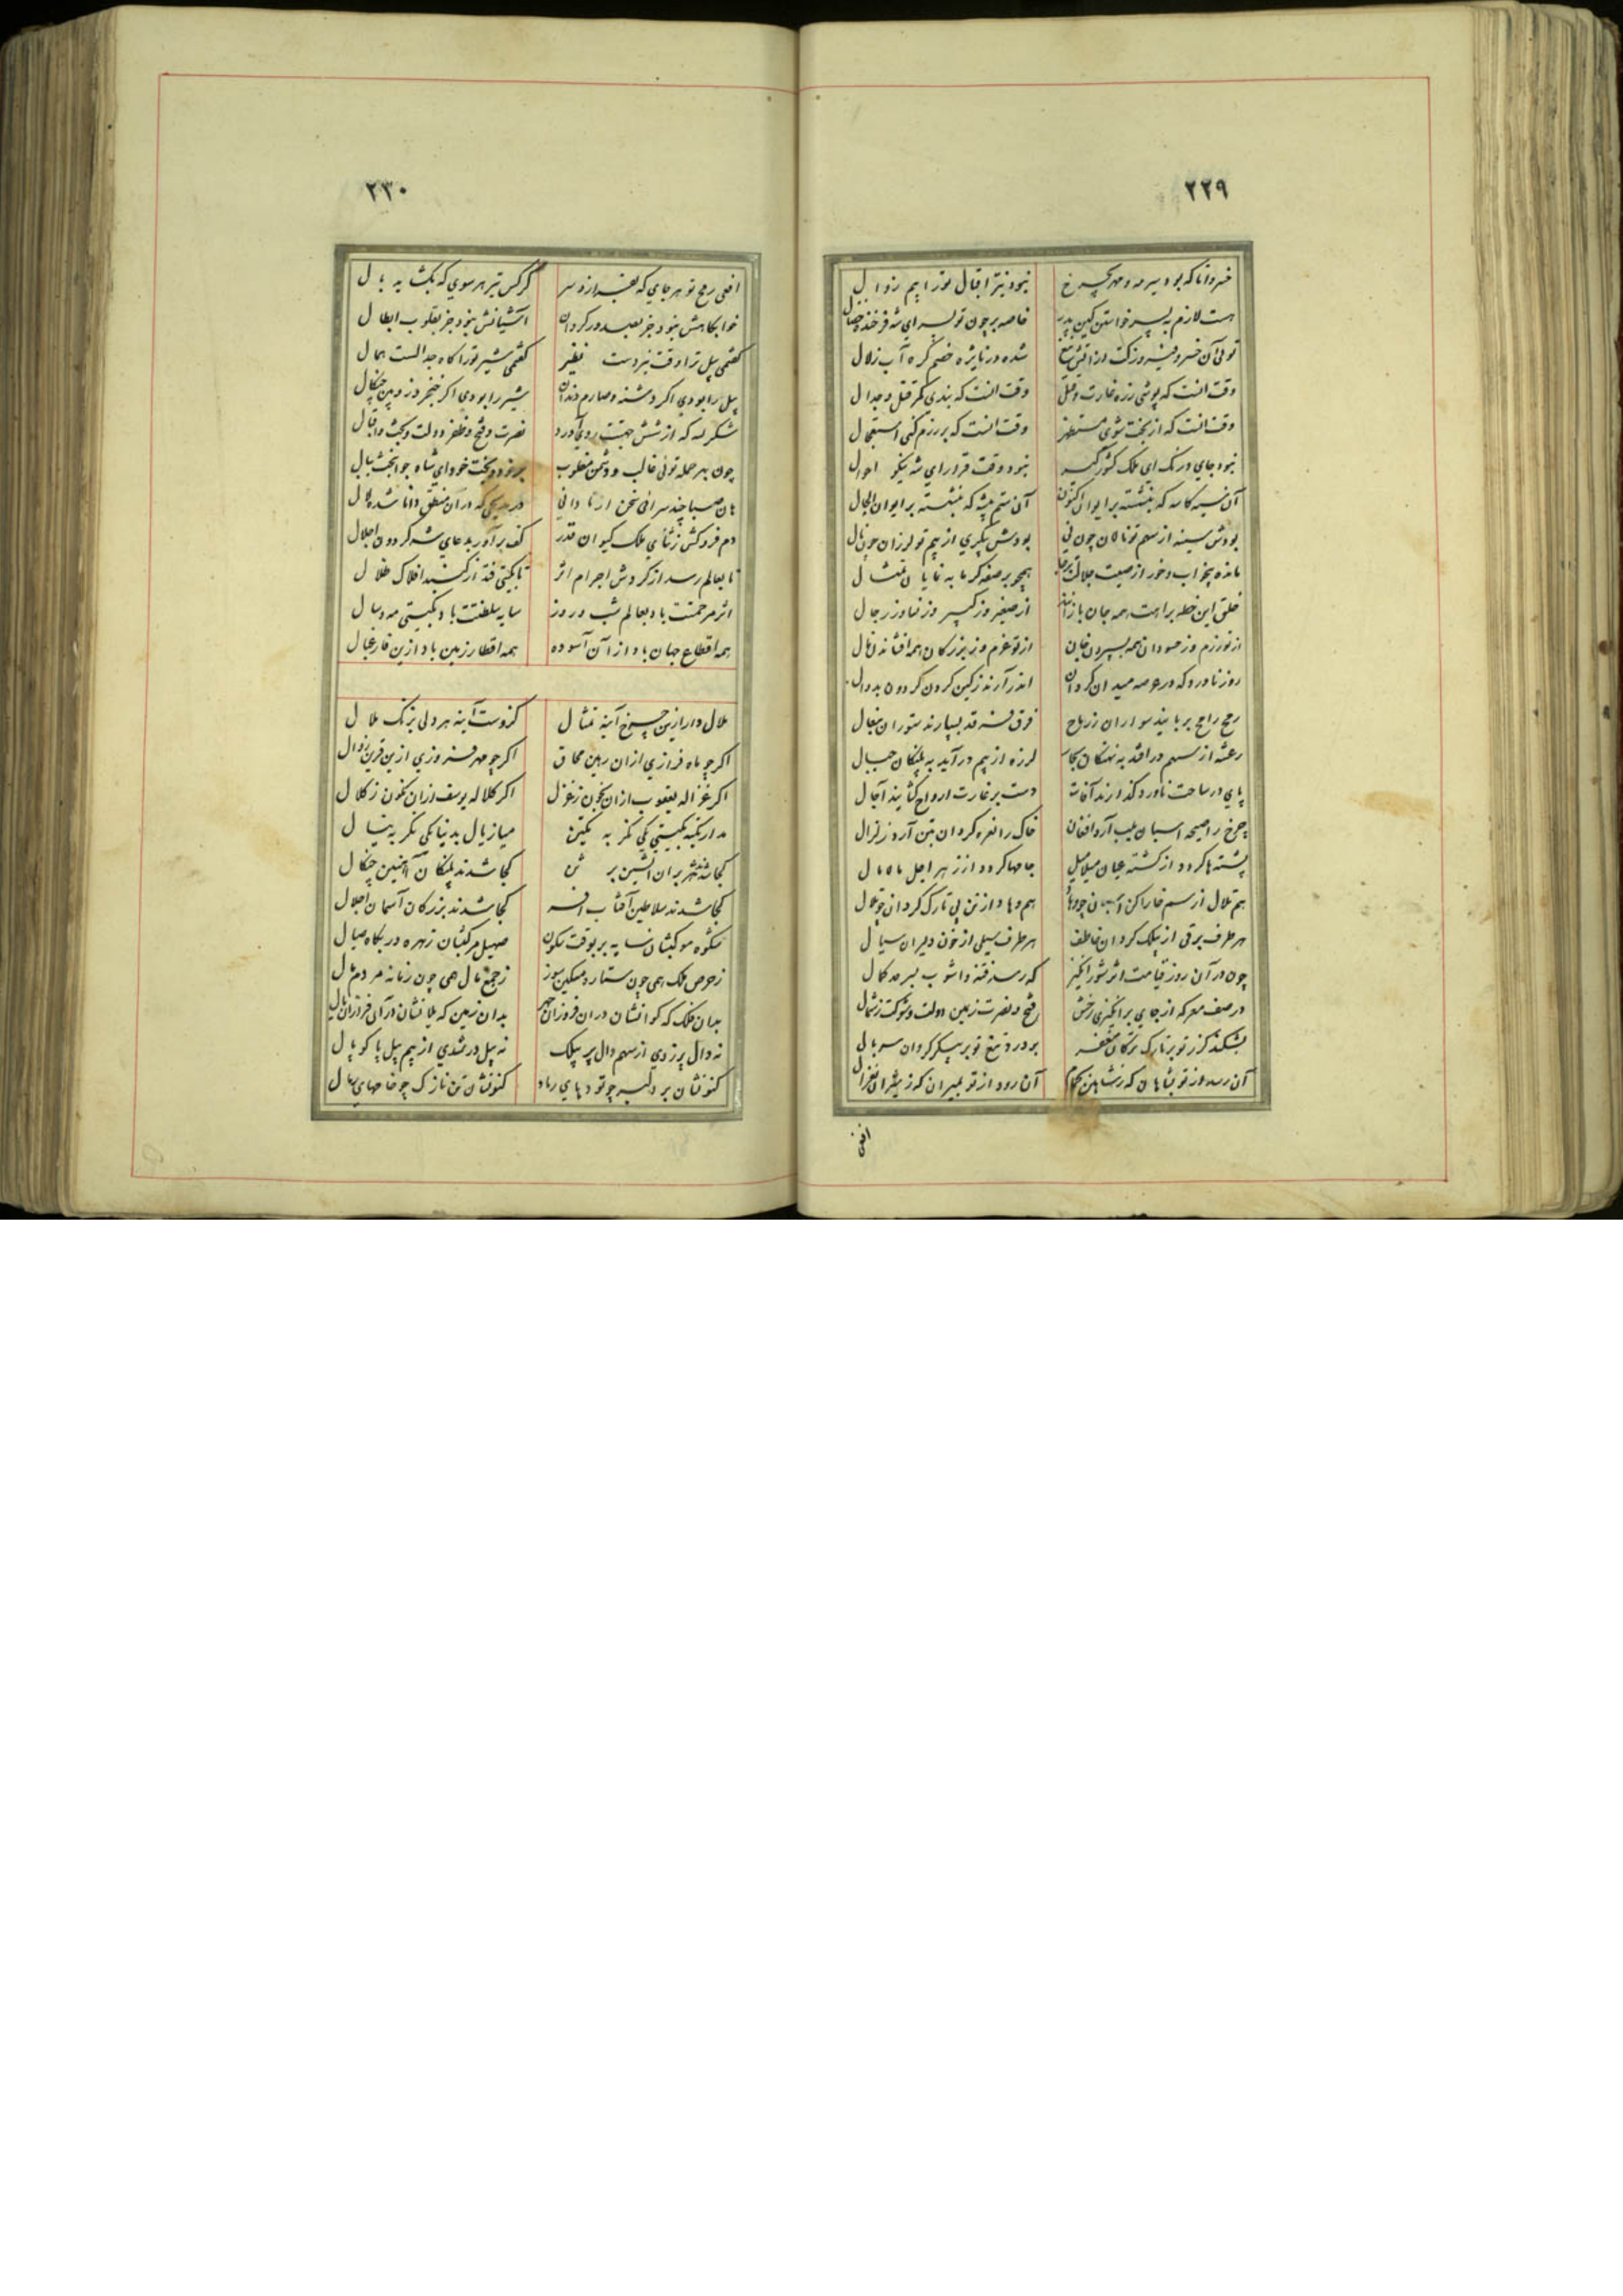 ٢٢٩
خسروا تا که بود سیر مه و مهر بچرخ
نبود نیّر اقبال تو را بیم زوال
هست لازم به پسر خواستن کین پدر
خاصه بر چون تو پسر ای شه فرخنده خصال
توئی آن خسرو فیروز کت از آتش تیغ
شده در نایژه خصم گره آب زلال
وقت آنست که پوشی زره غارت و قتل
وقت آنست که بندی کمر قتل و جدال
وقت آنست که از بخت شوی مستظهر
وقت آنست که بر رزم کنی استعجال
نبود جای درنگ ای ملک کشورگیر
نبود وقت قرار ای شه نیکو احوال
آن سیه کاسه که بنشسته بر ایوان اکنون
آن ستم پیشه که بنشسته بر ایوان الحال
بودش سینه از سهم تو نالان چون نی
بودش پیکری از بیم تو لرزان چون نال
مانده بیخواب و خور از صیت جلالت برجا
همچو بر صفه گرمابه نمایان تمثال
خلق این خطه براهت همه جان بازانند
از صغیر و ز کبیر و ز نسا و ز رجال
از تو رزم و ز حسودان همه بسپردن جان
از تو عزم و ز بزرگان همه افشاندن مال
روز ناورد که در عرصه میدان گردان
اندر آرند ز کین گردن گردون بدوال
رمح رامح بربایند سواران ز رماح
فرق فرقد بسپارند ستوران بنعال
رعشه از سهم درافتد به نهنگان بحار
لرزه از بیم درآید به پلنگان جبال
پای در ساحت ناورد گذارند آفات
دست بر غارت ارواح گشایند آجال
چرخ را صیحه اسبان بلب آرد افغان
خاک را نعره گردان بتن آرد زلزال
پشته‌ها گردد از کشته عیان میلامیل
جامها گردد از زهر اجل مالامال
هم تلال از سم خاراکن اسبان چو وهاد
هم وهاد از تن بی تارک گردان چو تلال
هر طرف برقی از بیلک گردان خاطف
هر طرف سیلی از خون دلیران سیال
چون در آن روز قیامت اثر شورانگیز
که رسد فتنه و آشوب بسرحد کمال
در صف معرکه از جای برانگیزی رخش
فتح و نصرت ز یمین دولت و شوکت ز شمال
بشکند گرز تو بر تارک ترکان مغفر
بردرد تیغ تو بر پیکر گردان سربال
آن رسد از تو بشاهان که ز شاهین بحمام
آن رود از تو بمیران که ز شیران بغزال
افعی
٢٣٠
افعی رمح تو هر جای که بفرازد سر
کرکس تیر هر سوی که بگشاید بال
خوابگاهش نبود جز بصدور گردان
آشیانش نبود جز بقلوب ابطال
گفتمی پیل ترا وقت نبردست نظیر
گفتمی شیر تو را گاه جدالست همال
پیل را بودی اگر دشنه و صارم دندان
شیر را بودی اگر خنجر و زوبین چنگال
شکر لله که از شش جهتت روی آورد
نصرت و فتح و ظفر دولت و بخت و اقبال
چون بهر حمله توئی غالب و دشمن مغلوب
بر خود و بخت خود ای شاه جوانبخت ببال
هان صبا چند سرائی سخن از نادانی
در مدیحی که در آن منطق دانا شده لال
دم فروکش ز ثنای ملک کیوان قدر
کف برآور بدعای شه گردون اجلال
تا بعالم رسد از گردش اجرام اثر
تا بگیتی فتد از گنبد افلاک ظلال
اثر مرحمتت باد بعالم شب و روز
سایه سلطنتت باد بگیتی مه و سال
همه اقطاع جهان باد از آن آسوده
همه اقطار زمین باد ازین فارغ بال
ملال دار ازین چرخ آینه تمثال
کزوست آینه هر دلی بزنگ ملال
اگر چو ماه فرازی ازان رهین محاق
اگر چو مهر فروزی ازین قرین زوال
اگر غزاله یعقوب ازان بخون ز غزل
اگر کلاله یوسف ازان نگون ز کلال
مدار تکیه بگیتی یکی نگر به یمین
میاز یال بدنیا یکی نگر بشمال
کجا شدند هژبران آتشین برثن
کجا شدند پلنگان آهنین چنگال
کجا شدند سلاطین آفتاب افسر
کجا شدند بزرگان آسمان اجلال
شکوه موکبشان سایه بر بوقت سکون
صهیل مرکبشان زهره در بگاه صیال
ز حرص ملک همی چون ستاره مسکین سوز
ز جمع مال همی چون زمانه مردم مال
بدان فلک که کو انشان دران فروزان چهر
بدان زمین که یلانشان در آن فرازان یال
نه دال پر زدی از سهم دال پر بیلک
نه پیل در شدی از بیم پیل پا کوپال
کنونشان بر دلبر چو تودهای رماد
کنونشان تن نازک چو خامهای رمال